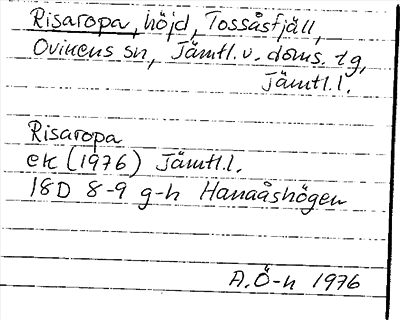 Risaropa, höjd, Tossåsfjäll,
Ovikens sn, Jämtl. v. doms. tg,
Jämtl.l.
Risaropa
ek (1976) Jämtl.l.
18D 8-9 g-h Hanaåshögen
A.Ö-n 1976